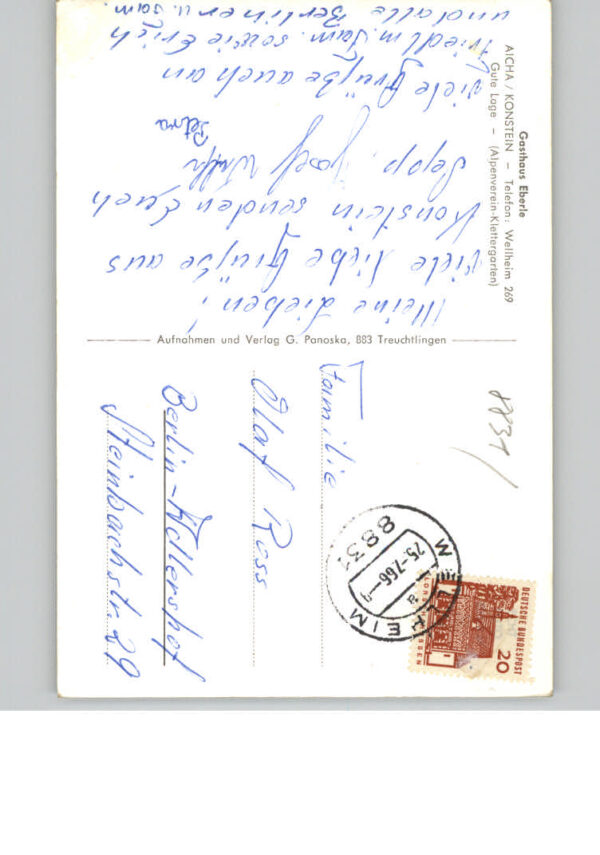 Gasthaus Eberle
AICHA / KONSTEIN – Telefon: Wellheim 269
Gute Lage – (Alpenverein-Klettergarten)
Meine Lieben!
Viele liebe Grüße aus
Konstein senden Euch
Sepp. Josef
Petra
Viele Grüße auch an
Friedl m. Fam. sowie Erich
und alle Berliner u. Fam.
Aufnahmen und Verlag G. Panoska, 883 Treuchtlingen
8831
DEUTSCHE BUNDESPOST
20
WELLHEIM
25.-7.66-9
a
8831
Familie
Olaf Ross
Berlin-Adlershof
Steinbachstr. 29